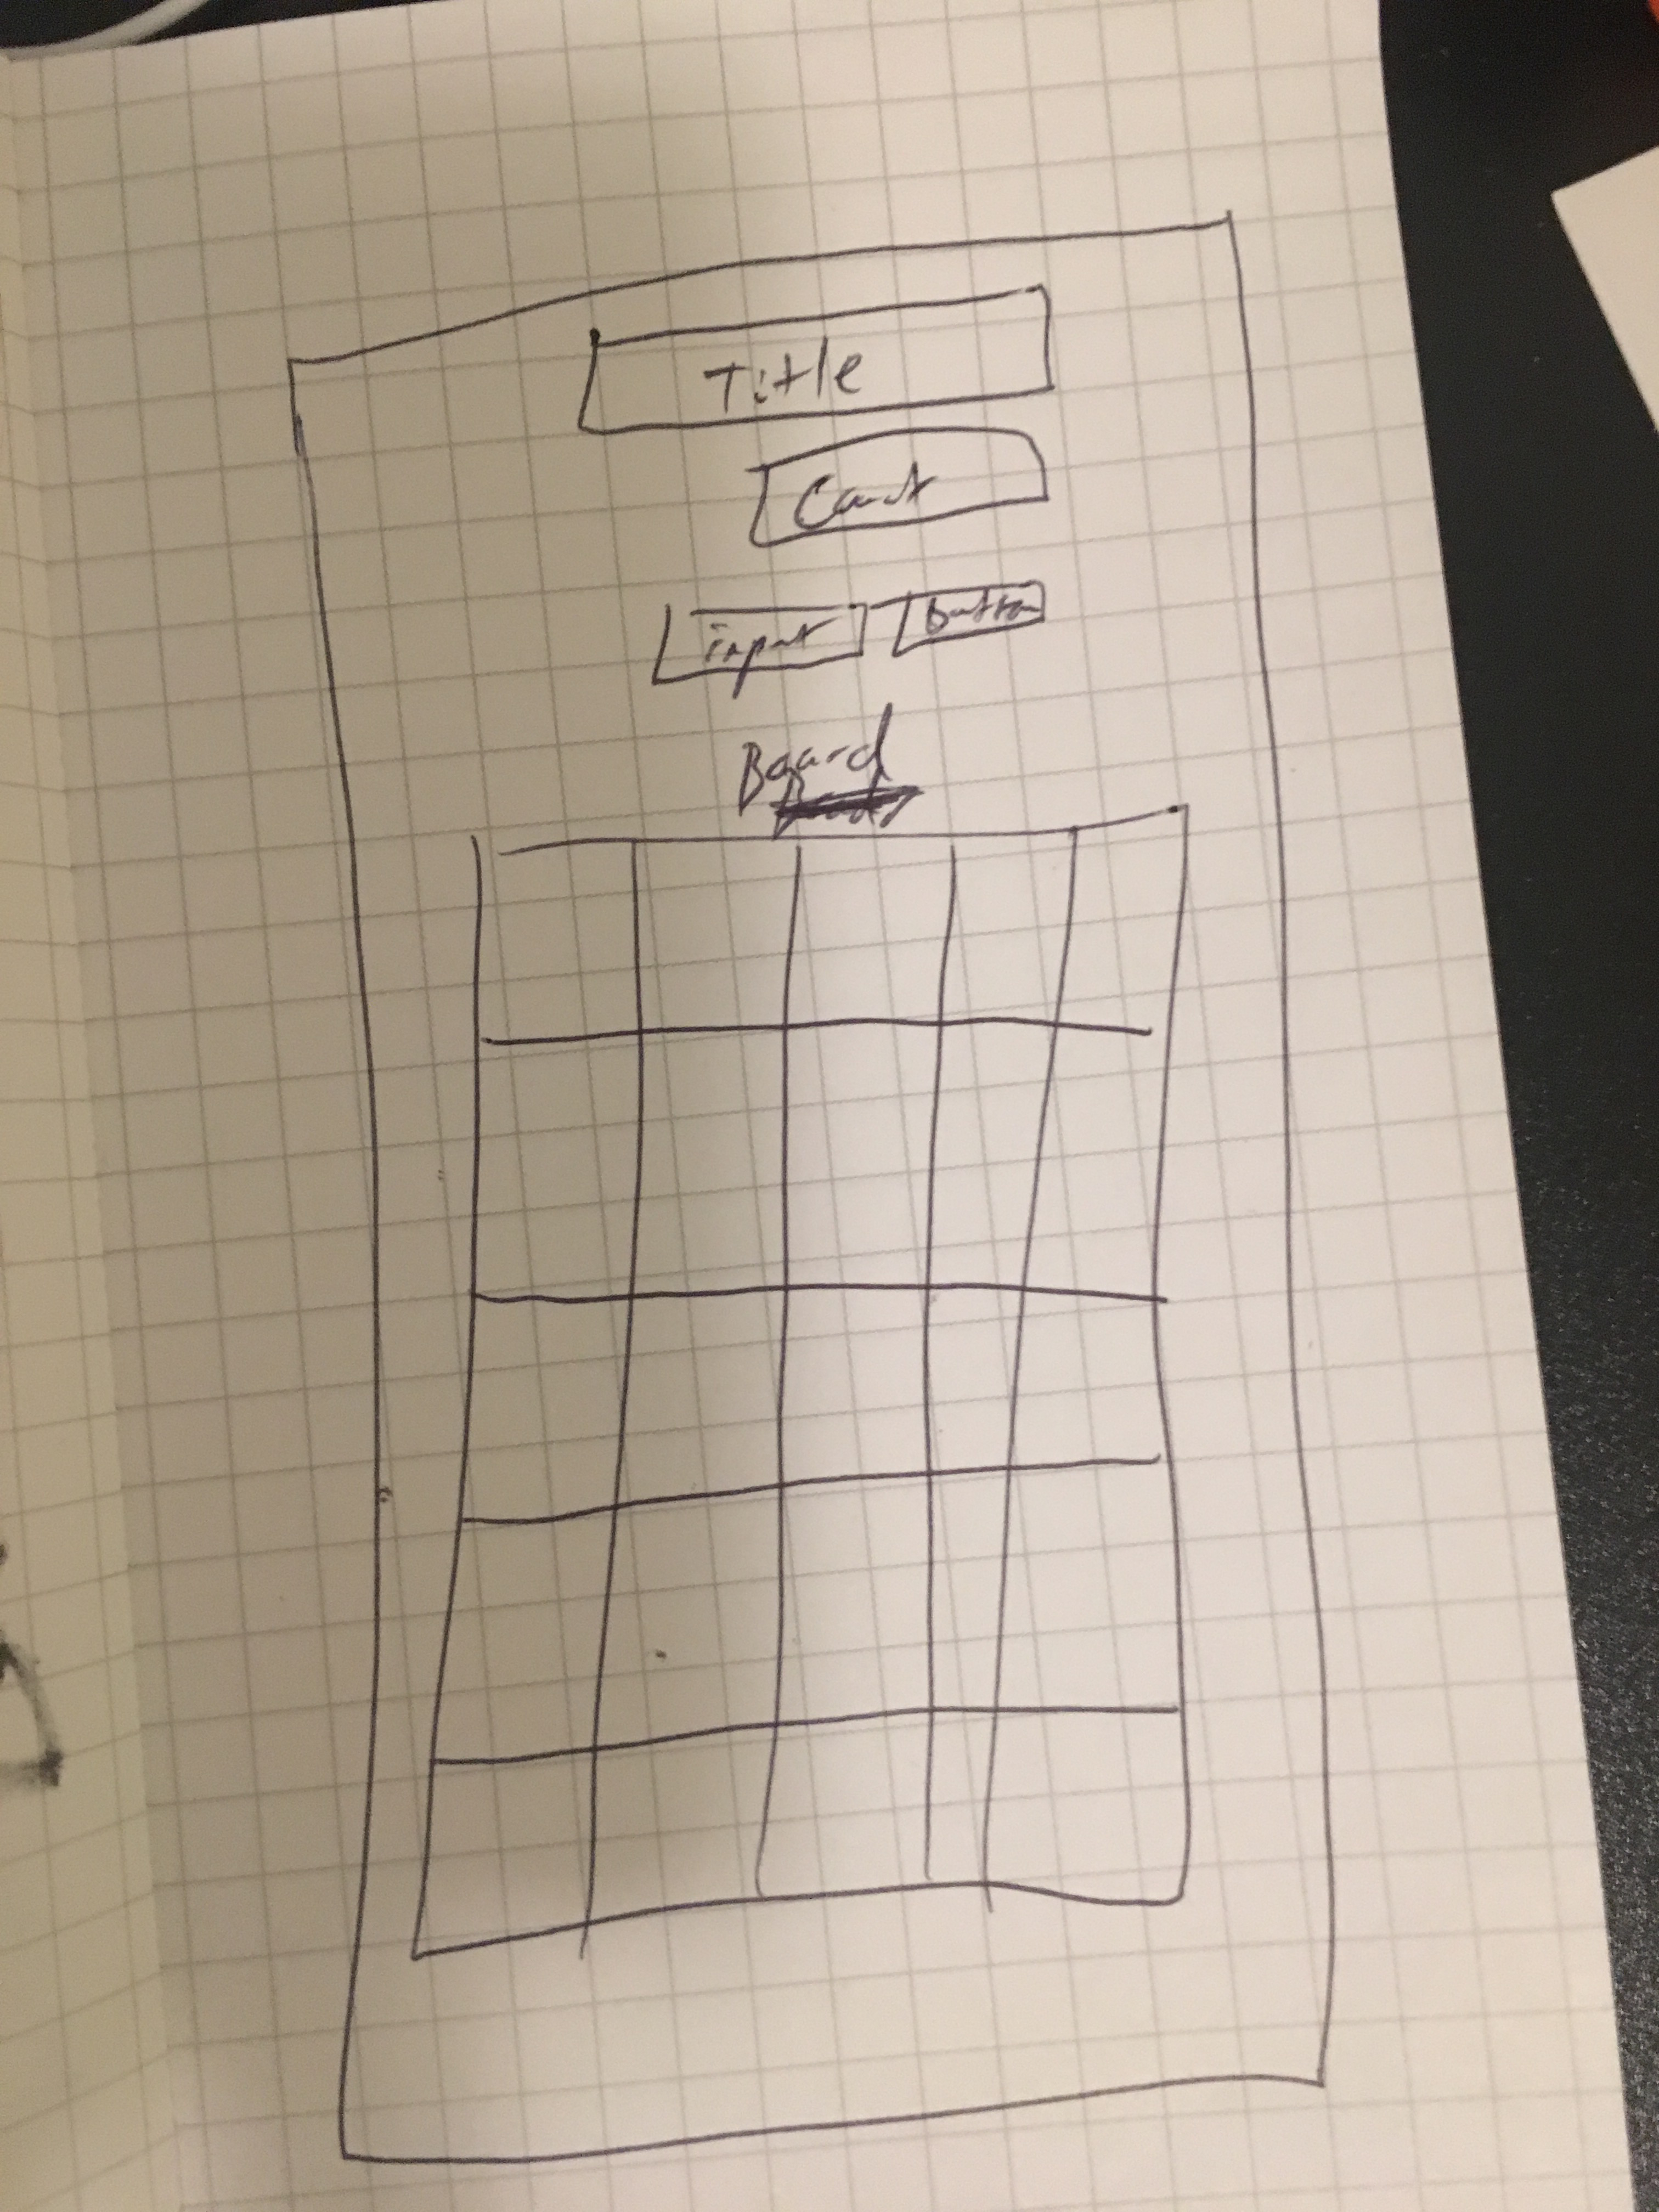 Title
input button
Board